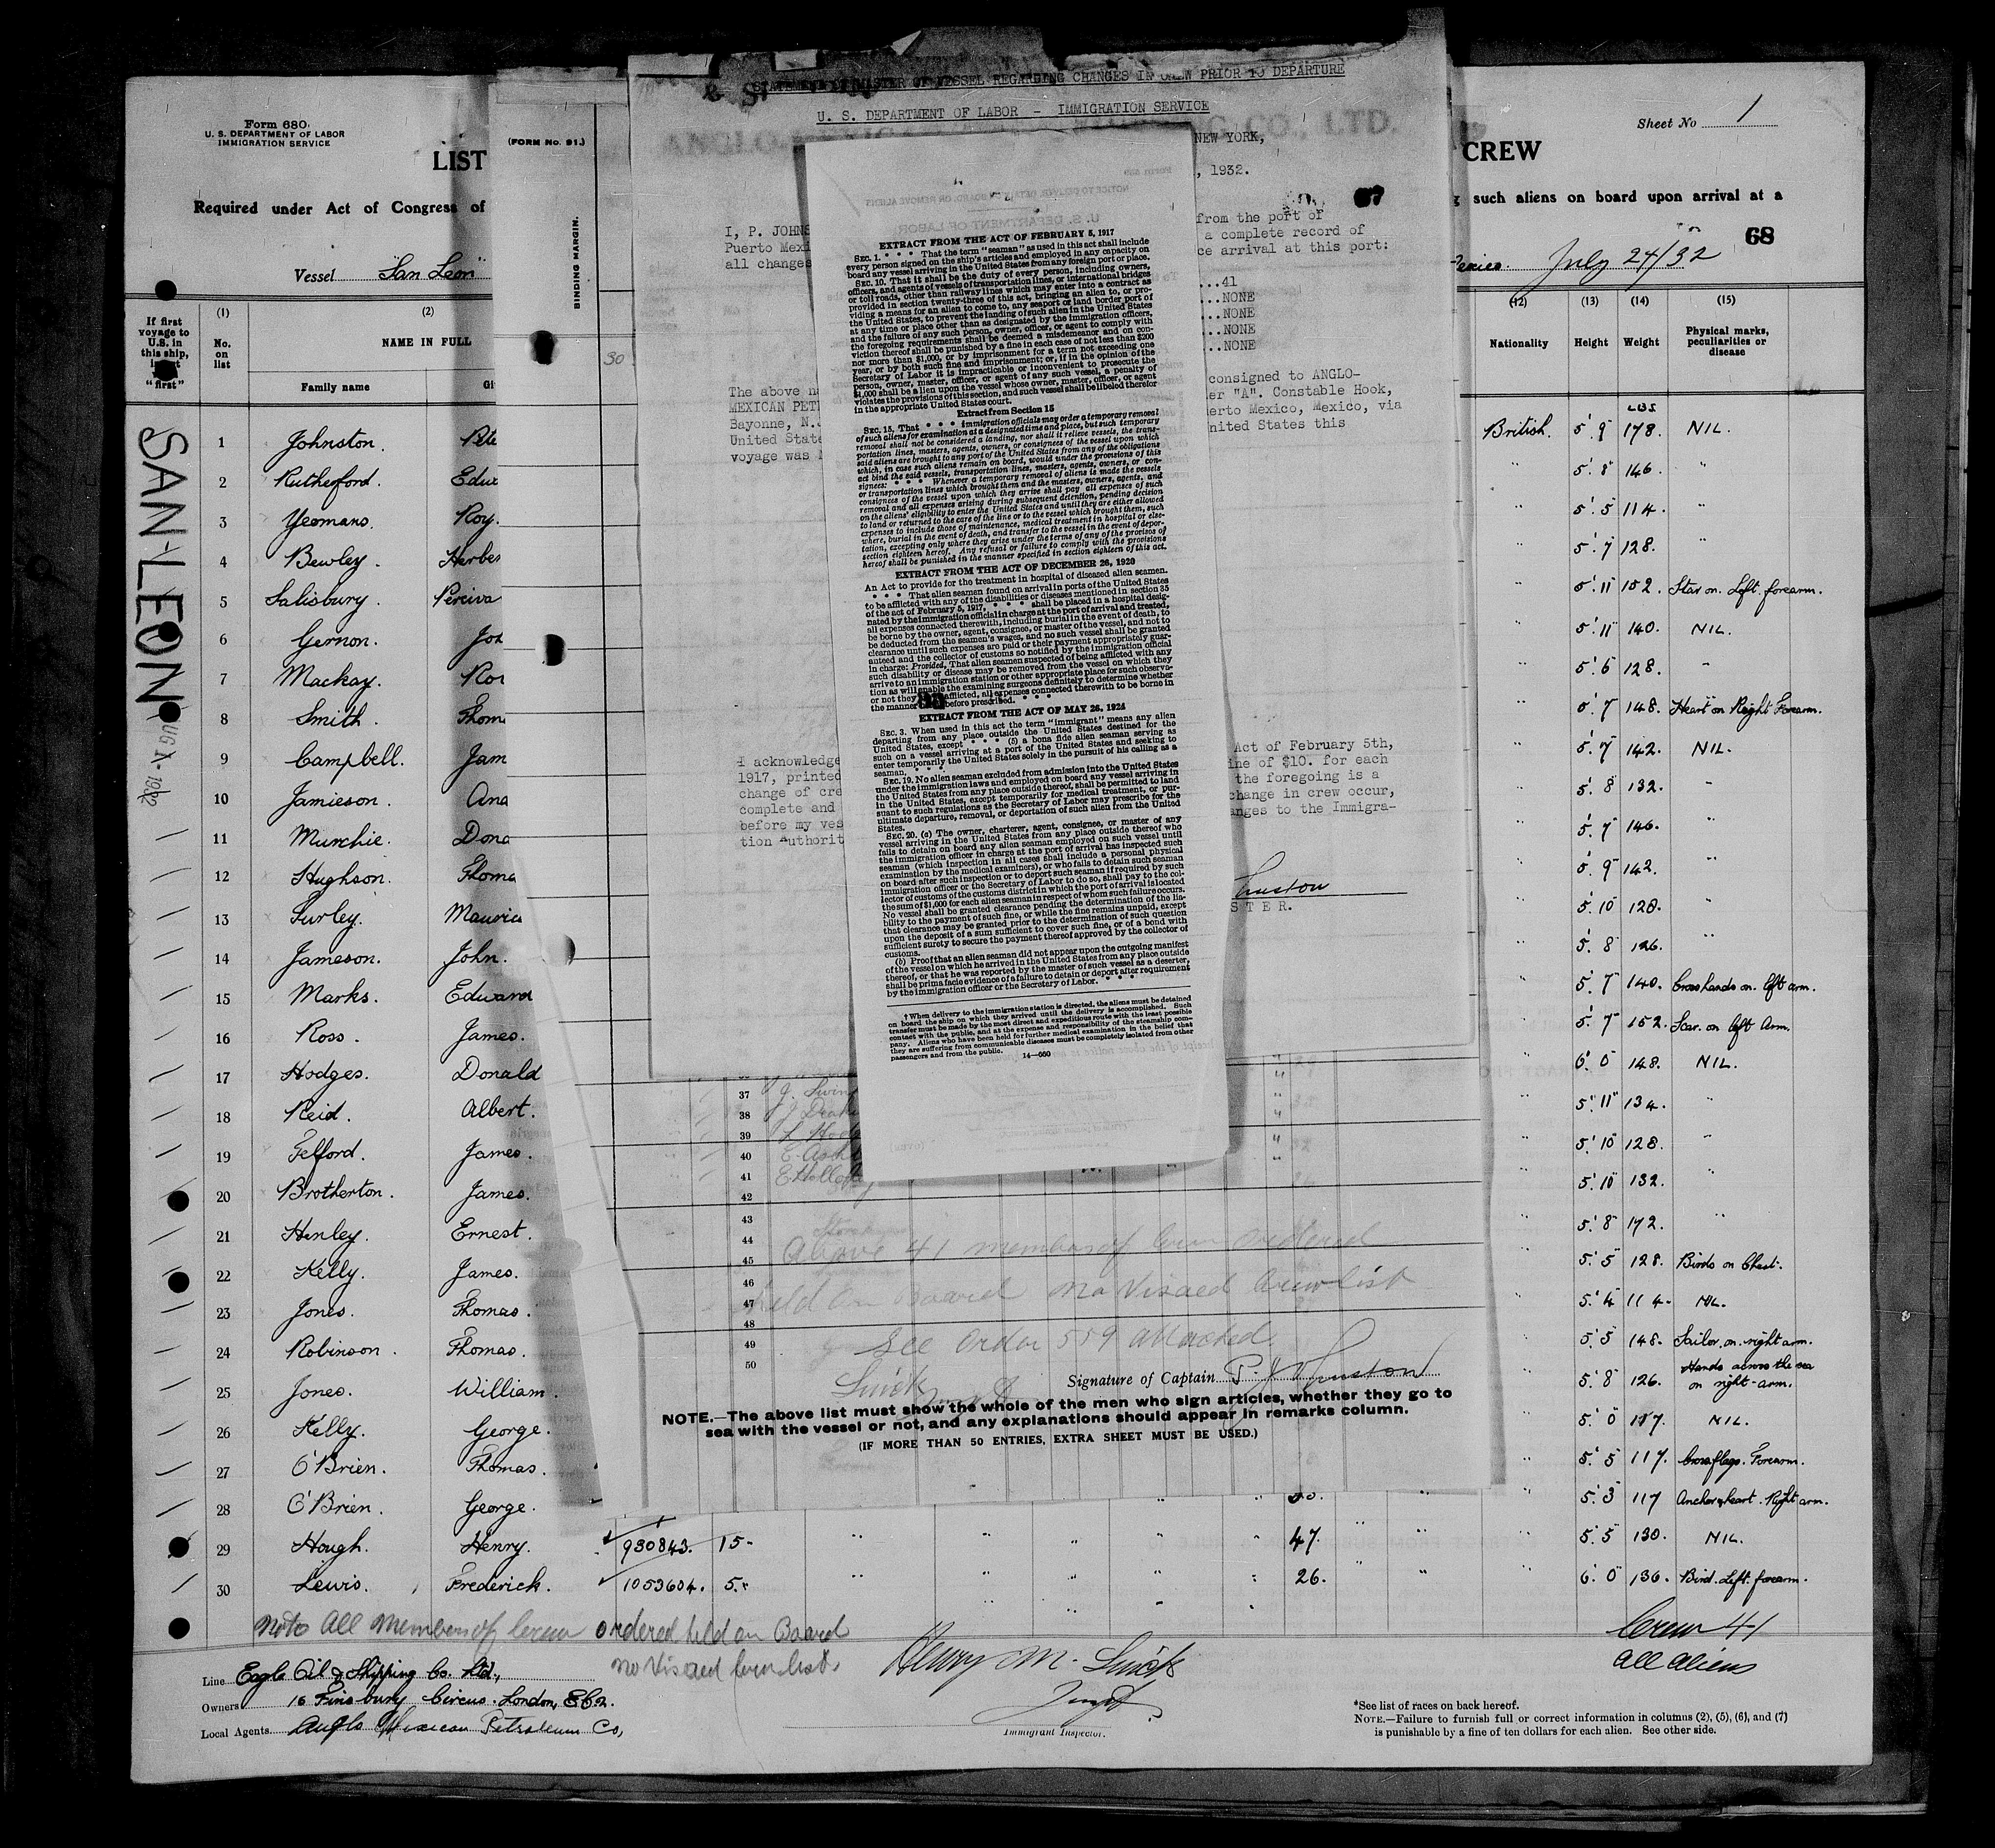 Form 680
U. S. DEPARTMENT OF LABOR
IMMIGRATION SERVICE
LIST
Required under Act of Congress of
Vessel "San Leon"
(FORM No. 91.)
BINDING MARGIN.
STATEMENT OF MASTER OF VESSEL REGARDING CHANGES IN CREW PRIOR TO DEPARTURE
U. S. DEPARTMENT OF LABOR - IMMIGRATION SERVICE
CO., LTD.
NEW YORK,
, 1932.
Sheet No 1
CREW
such aliens on board upon arrival at a
68
July 24/32
I, P. JOHNS
from the port of
Puerto Mexi
a complete record of
all changes
ce arrival at this port:
...41
...NONE
...NONE
...NONE
...NONE
The above n
consigned to ANGLO-
MEXICAN PET
er "A". Constable Hook,
Bayonne, N.
erto Mexico, Mexico, via
United State
nited States this
voyage was
I acknowledge
Act of February 5th,
1917, printed
ine of $10. for each
change of cre
the foregoing is a
complete and
change in crew occur,
before my ves
anges to the Immigra-
tion Authorit
STER.
EXTRACT FROM THE ACT OF FEBRUARY 5, 1917
SEC. 1. * * * That the term "seaman" as used in this act shall include
every person signed on the ship's articles and employed in any capacity on
board any vessel arriving in the United States from any foreign port or place.
SEC. 10. That it shall be the duty of every person, including owners,
officers, and agents of vessels of transportation lines, or international bridges
or toll roads, other than railway lines which may enter into a contract as
provided in section twenty-three of this act, bringing an alien to, or pro-
viding a means for an alien to come to, any seaport or land border port of
the United States, to prevent the landing of such alien in the United States
at any time or place other than as designated by the immigration officers,
and the failure of any such person, owner, officer, or agent to comply with
the foregoing requirements shall be deemed a misdemeanor and on con-
viction thereof shall be punished by a fine in each case of not less than $200
nor more than $1,000, or by imprisonment for a term not exceeding one
year, or by both such fine and imprisonment; or, if in the opinion of the
Secretary of Labor it is impracticable or inconvenient to prosecute the
person, owner, master, officer, or agent of any such vessel, a penalty of
$1,000 shall be a lien upon the vessel whose owner, master, officer, or agent
violates the provisions of this section, and such vessel shall be libeled therefor
in the appropriate United States court.
Extract from Section 15
SEC. 15. That * * * immigration officials may order a temporary removal
of such aliens for examination at a designated time and place, but such temporary
removal shall not be considered a landing, nor shall it relieve vessels, the trans-
portation lines, masters, agents, owners, or consignees of the vessel upon which
said aliens are brought to any port of the United States from any of the obligations
which, in case such aliens remain on board, would under the provisions of this
act bind the said vessels, transportation lines, masters, agents, owners, or con-
signees: * * * Whenever a temporary removal of aliens is made the vessels
or transportation lines which brought them and the masters, owners, agents, and
consignees of the vessel upon which they arrive shall pay all expenses of such
removal and all expenses arising during subsequent detention, pending decision
on the aliens' eligibility to enter the United States and until they are either allowed
to land or returned to the care of the line or to the vessel which brought them, such
expenses to include those of maintenance, medical treatment in hospital or else-
where, burial in the event of death, and transfer to the vessel in the event of depor-
tation, excepting only where they arise under the terms of any of the provisos of
section eighteen hereof. Any refusal or failure to comply with the provisions
hereof shall be punished in the manner specified in section eighteen of this act.
EXTRACT FROM THE ACT OF DECEMBER 26, 1920
An Act to provide for the treatment in hospital of diseased alien seamen.
* * * That alien seamen found on arrival in ports of the United States
to be afflicted with any of the disabilities or diseases mentioned in section 35
of the act of February 5, 1917, * * * shall be placed in a hospital desig-
nated by the immigration official in charge at the port of arrival and treated,
all expenses connected therewith, including burial in the event of death, to
be borne by the owner, agent, consignee, or master of the vessel, and not to
be deducted from the seamen's wages, and no such vessel shall be granted
clearance until such expenses are paid or their payment appropriately guar-
anteed and the collector of customs so notified by the immigration official
in charge: Provided, That alien seamen suspected of being afflicted with any
such disability or disease may be removed from the vessel on which they
arrive to an immigration station or other appropriate place for such observa-
tion as will enable the examining surgeons definitely to determine whether
or not they afflicted, all expenses connected therewith to be borne in
the manner before prescribed. * * *
EXTRACT FROM THE ACT OF MAY 26, 1924
SEC. 3. When used in this act the term "immigrant" means any alien
departing from any place outside the United States destined for the
United States, except * * * (5) a bona fide alien seaman serving as
such on a vessel arriving at a port of the United States and seeking to
enter temporarily the United States solely in the pursuit of his calling as a
seaman. * * *
SEC. 19. No alien seaman excluded from admission into the United States
under the immigration laws and employed on board any vessel arriving in
the United States from any place outside thereof, shall be permitted to land
in the United States, except temporarily for medical treatment, or pur-
suant to such regulations as the Secretary of Labor may prescribe for the
ultimate departure, removal, or deportation of such alien from the United
States.
SEC. 20. (a) The owner, charterer, agent, consignee, or master of any
vessel arriving in the United States from any place outside thereof who
fails to detain on board any alien seaman employed on such vessel until
the immigration officer in charge at the port of arrival has inspected such
seaman (which inspection in all cases shall include a personal physical
examination by the medical examiners), or who fails to detain such seaman
on board after such inspection or to deport such seaman if required by such
immigration officer or the Secretary of Labor to do so, shall pay to the col-
lector of customs of the customs district in which the port of arrival is located
the sum of $1,000 for each alien seaman in respect of whom such failure occurs.
No vessel shall be granted clearance pending the determination of the lia-
bility to the payment of such fine, or while the fine remains unpaid, except
that clearance may be granted prior to the determination of such question
upon the deposit of a sum sufficient to cover such fine, or of a bond with
sufficient surety to secure the payment thereof approved by the collector of
customs.
(b) Proof that an alien seaman did not appear upon the outgoing manifest
of the vessel on which he arrived in the United States from any place outside
thereof, or that he was reported by the master of such vessel as a deserter,
shall be prima facie evidence of a failure to detain or deport after requirement
by the immigration officer or the Secretary of Labor. * * *
† When delivery to the immigration station is directed, the aliens must be detained
on board the ship on which they arrived until the delivery is accomplished. Such
transfer must be made by the most direct and expeditious route with the least possible
contact with the public, and at the expense and responsibility of the steamship com-
pany. Aliens who have been held for further medical examination in the belief that
they are suffering from communicable diseases must be completely isolated from other
passengers and from the public.
14—660
If first voyage to U.S. in this ship, "first"
(1) No. on list
(2) NAME IN FULL
Family name
(12) Nationality
(13) Height
(14) Weight
(15) Physical marks, peculiarities or disease
LBS
SAN-LEON
30
1 Johnston. British. 5' 9" 178. NIL.
2 Rutherford. " 5' 8" 146. "
3 Yeomans. Roy. " 5' 5" 114. "
4 Bewley. Herber " 5' 7" 128. "
5 Salisbury. Perciva 5' 11" 152. Star on. Left forearm.
6 Gernon. 5' 11" 140. NIL.
7 Mackay. " 5' 6" 128. "
8 Smith. Thom 5' 7 148. Heart on Right Forearm.
9 Campbell. Jam " 5' 7" 142. NIL.
10 Jamieson. " 5' 8" 132. "
11 Murchie. Dona " 5' 7" 146. "
12 Hughson. Thoma " 5' 9" 142. "
13 Furley. Mauric " 5' 10" 128. "
14 Jameson. John. " 5' 8" 126. "
15 Marks. Edward " 5' 7" 140. Cross hands on left arm.
16 Ross. James. " 5' 7" 152. Scar on left Arm.
17 Hodges. Donald " 6' 0" 148. NIL.
18 Reid. Albert. " 5' 11" 134. "
19 Telford. James. " 5' 10" 128. "
20 Brotherton. James. " 5' 10" 132. "
21 Henley. Ernest. " 5' 8" 172. "
22 Kelly. James. " 5' 5" 128. Birds on Chest.
23 Jones. Thomas. " 5' 4" 114. NIL.
24 Robinson. Thomas. " 5' 5" 148. Sailor on right arm.
25 Jones. William. " 5' 8" 126. Hands across the sea on right-arm.
26 Kelly. George. " 5' 0" 117. NIL.
27 O'Brien. Thomas. " 5' 5" 117. Crossflags. Forearm.
28 O'Brien. George. " 5' 3" 117 Anchor & heart. Right arm.
29 Hough. Henry. 930843. 15- " 47. " 5' 5" 130. NIL.
30 Lewis. Frederick. 1053604. 5. " 26. " 6' 0" 136. Bird. Left. forearm.
37
38
39
40
41
42
43
44
45
46
47
48
49
50
Above 41 members of Crew ordered
held on Board no Visaed Crew list
See Order 559 attached.
Signature of Captain P. Johnston
NOTE.—The above list must show the whole of the men who sign articles, whether they go to
sea with the vessel or not, and any explanations should appear in remarks column.
(IF MORE THAN 50 ENTRIES, EXTRA SHEET MUST BE USED.)
Note All Members of Crew ordered held on Board
no Visaed Crew list.
Crew 41
all aliens
Line Eagle Oil & Shipping Co. Ltd.,
Owners 16 Finsbury Circus. London, E.C.2.
Local Agents Anglo Mexican Petroleum Co,
Immigrant Inspector.
*See list of races on back hereof.
NOTE.—Failure to furnish full or correct information in columns (2), (5), (6), and (7)
is punishable by a fine of ten dollars for each alien. See other side.